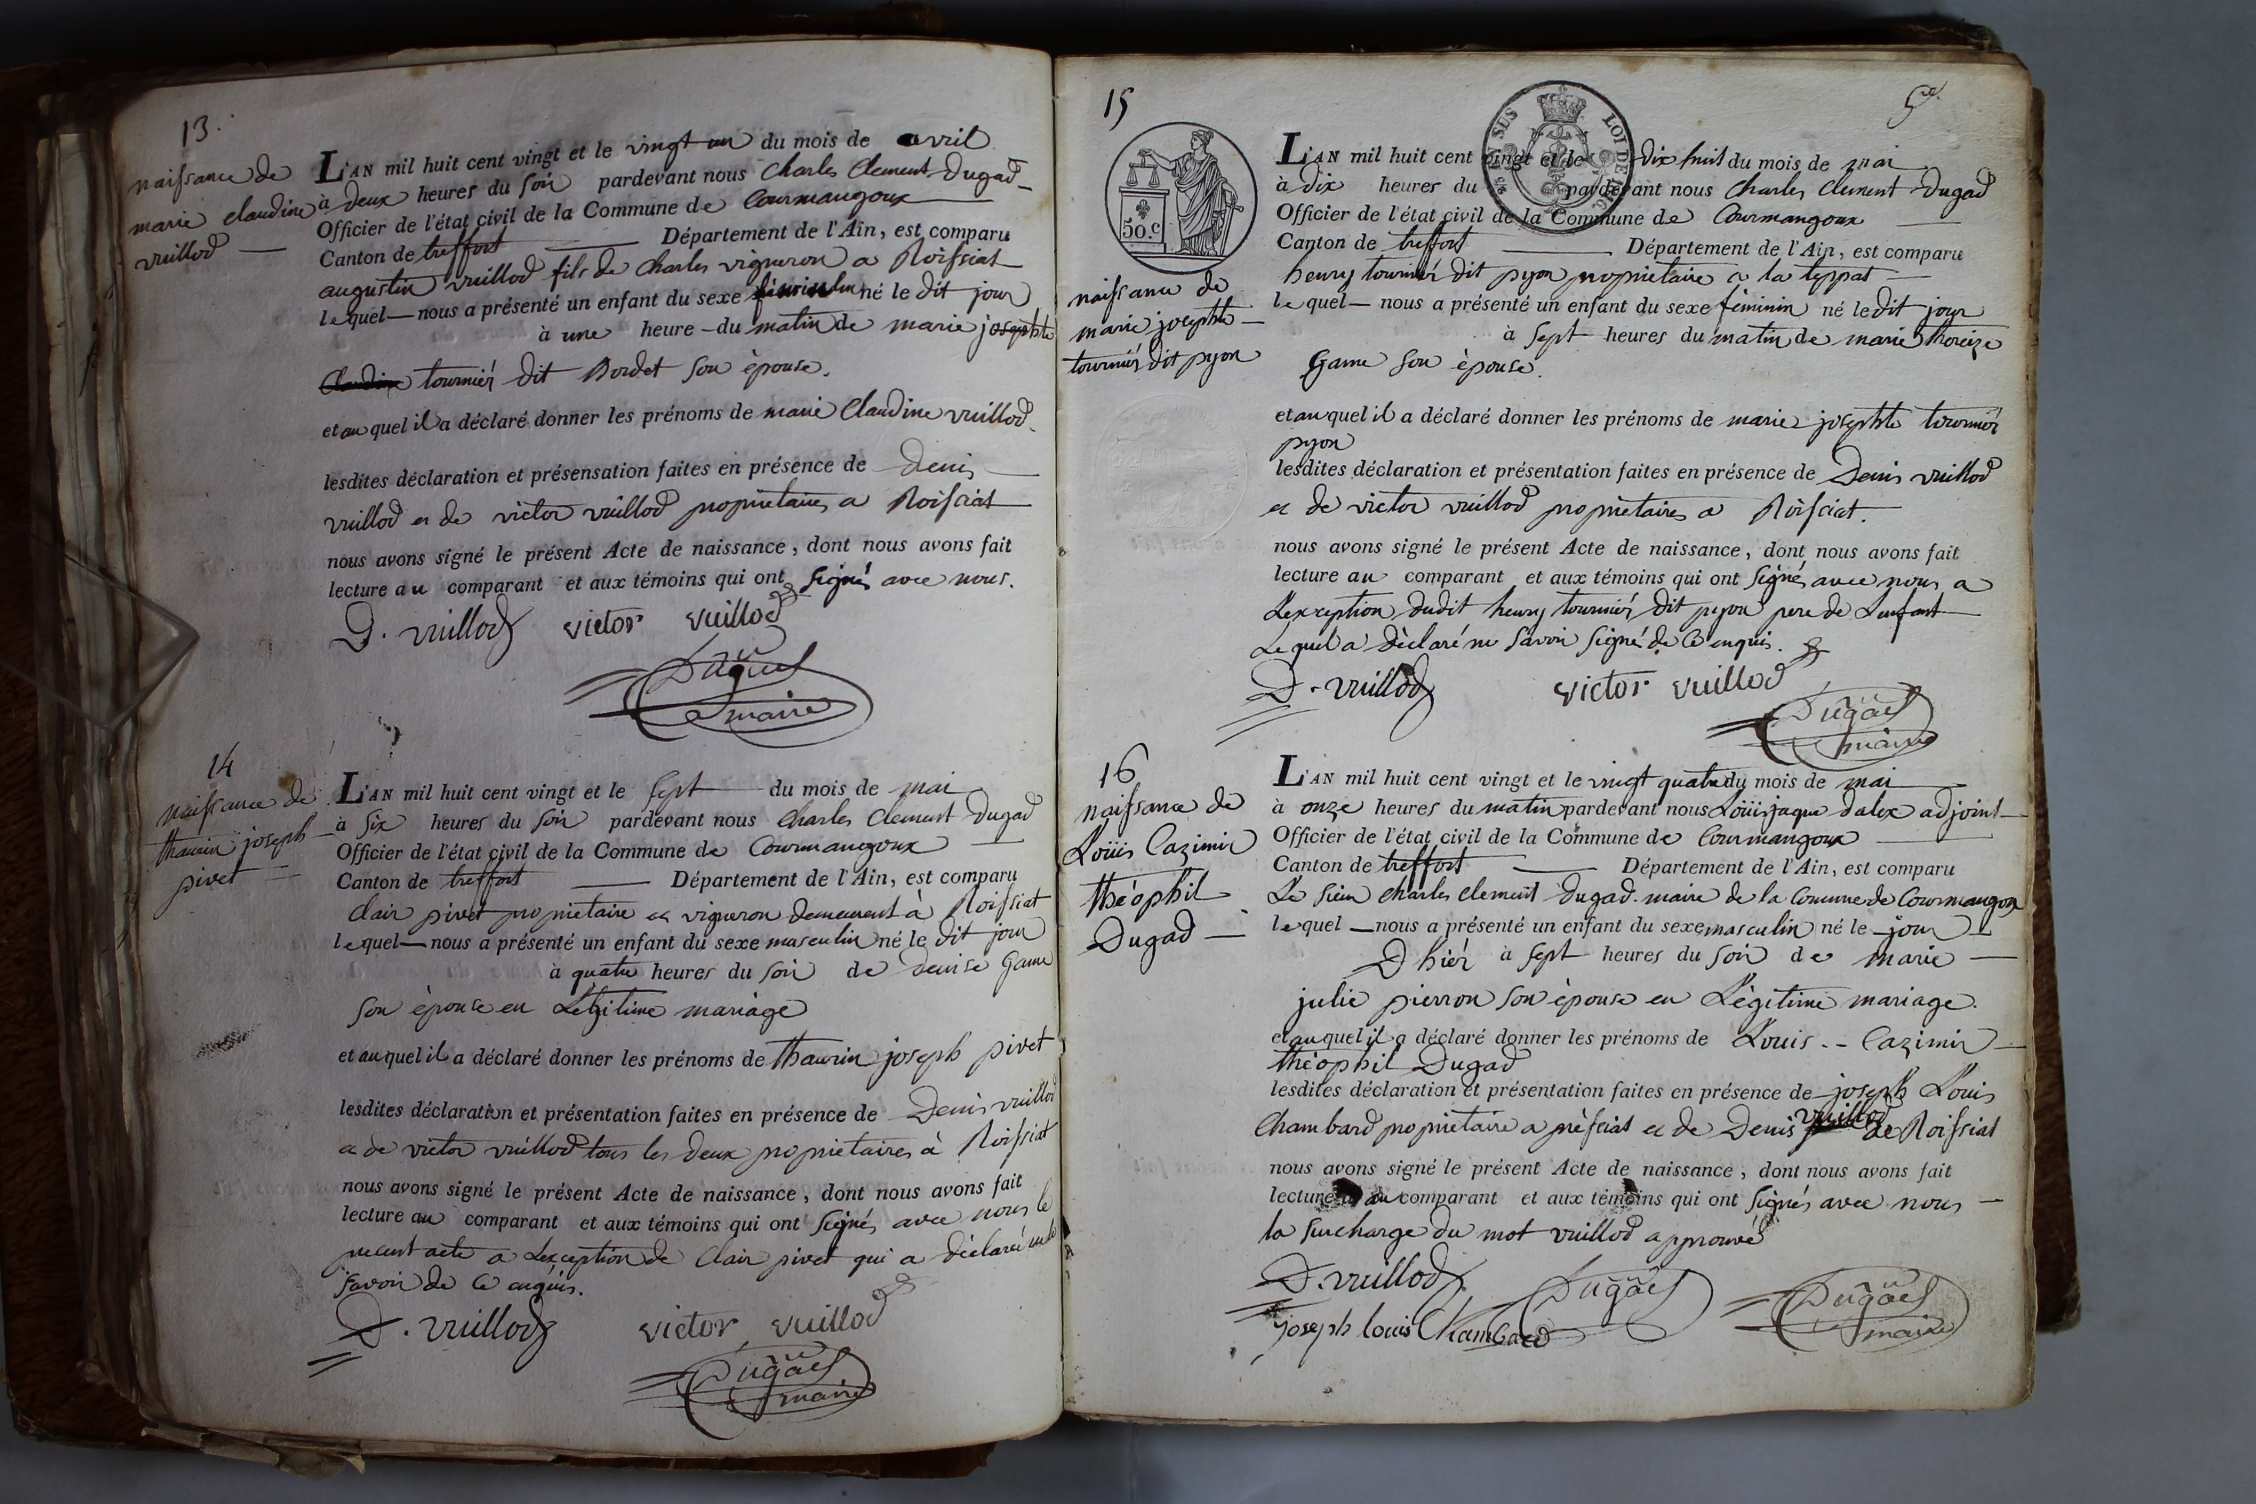 13.
naissance de
marie claudine
vuillod
L'AN mil huit cent vingt et le vingt un du mois de avril
à deux heures du soir pardevant nous Charles Clement Dugad
Officier de l'état civil de la Commune de Courmangoux
Canton de treffort Département de l'Ain, est comparu
augustin vuillod fils de Charles vigneron a Roissiat
lequel nous a présenté un enfant du sexe féminin né le dit jour
à une heure du matin de marie josephte
Claudine tournier dit Bordet son épouse.
et au quel il a déclaré donner les prénoms de marie Claudine vuillod.
lesdites déclaration et présensation faites en présence de Denis
vuillod et de victor vuillod propriétaires a Roissiat
nous avons signé le présent Acte de naissance, dont nous avons fait
lecture au comparant et aux témoins qui ont signés avec nous.
D. vuillod victor vuillod
Dugad
maire
14
naissance de
thaurin joseph
pivet
L'AN mil huit cent vingt et le sept du mois de mai
à six heures du soir pardevant nous Charles Clement Dugad
Officier de l'état civil de la Commune de Courmangoux
Canton de treffort Département de l'Ain, est comparu
Clair pivet propriétaire et vigneron demeurent à Roissiat
lequel nous a présenté un enfant du sexe masculin né le dit jour
à quatre heures du soir de denise Game
son épouse en Légitime mariage
et au quel il a déclaré donner les prénoms de thaurin joseph pivet
lesdites déclaration et présentation faites en présence de Denis vuillod
et de victor vuillod tous les deux propriétaires à Roissiat
nous avons signé le présent Acte de naissance, dont nous avons fait
lecture au comparant et aux témoins qui ont signés avec nous le
present acte a Lexception de Clair pivet qui a déclaré ne le
savoir de ce enquis.
D. vuillod victor vuillod
Dugad
maire
15
5me
50.c
LOI DE
naissance de
marie josephte
tournier dit pyon
L'AN mil huit cent vingt et le dix huit du mois de mai
à dix heures du pardevant nous Charles Clement Dugad
Officier de l'état civil de la Commune de Courmangoux
Canton de treffort Département de l'Ain, est comparu
henry tournier dit pyon propriétaire a la teppat
lequel nous a présenté un enfant du sexe féminin né le dit jour
à sept heures du matin de marie thereize
Game son épouse.
et au quel il a déclaré donner les prénoms de marie josephte tournier
pyon
lesdites déclaration et présentation faites en présence de Denis vuillod
et de victor vuillod propriétaires a Roissiat.
nous avons signé le présent Acte de naissance, dont nous avons fait
lecture au comparant et aux témoins qui ont signés avec nous a
Lexception dudit henry tournier dit pyon pere de Lenfant
Lequel a déclaré ne savoir signé de ce enquis.
D. vuillod victor vuillod
Dugad
maire
16
naissance de
Loüis Cazimir
théophil
Dugad
L'AN mil huit cent vingt et le vingt quatre du mois de mai
à onze heures du matin pardevant nous Loüis jaque dalex adjoint
Officier de l'état civil de la Commune de Courmangoux
Canton de treffort Département de l'Ain, est comparu
Le sieur Charles Clement Dugad maire de la Commune de Courmangoux
lequel nous a présenté un enfant du sexe masculin né le jour
D hiér à sept heures du soir de marie
julie pierron son épouse en Légitime mariage.
et au quel il a déclaré donner les prénoms de Louis Cazimir
théophil Dugad
lesdites déclaration et présentation faites en présence de joseph Louis
Chambard propriétaire a présiat et de Denis vuillod de Roissiat
nous avons signé le présent Acte de naissance, dont nous avons fait
lecture au comparant et aux témoins qui ont signés avec nous
la surcharge du mot vuillod approuvé
D. vuillod Dugad Dugad
joseph louis Chambard maire